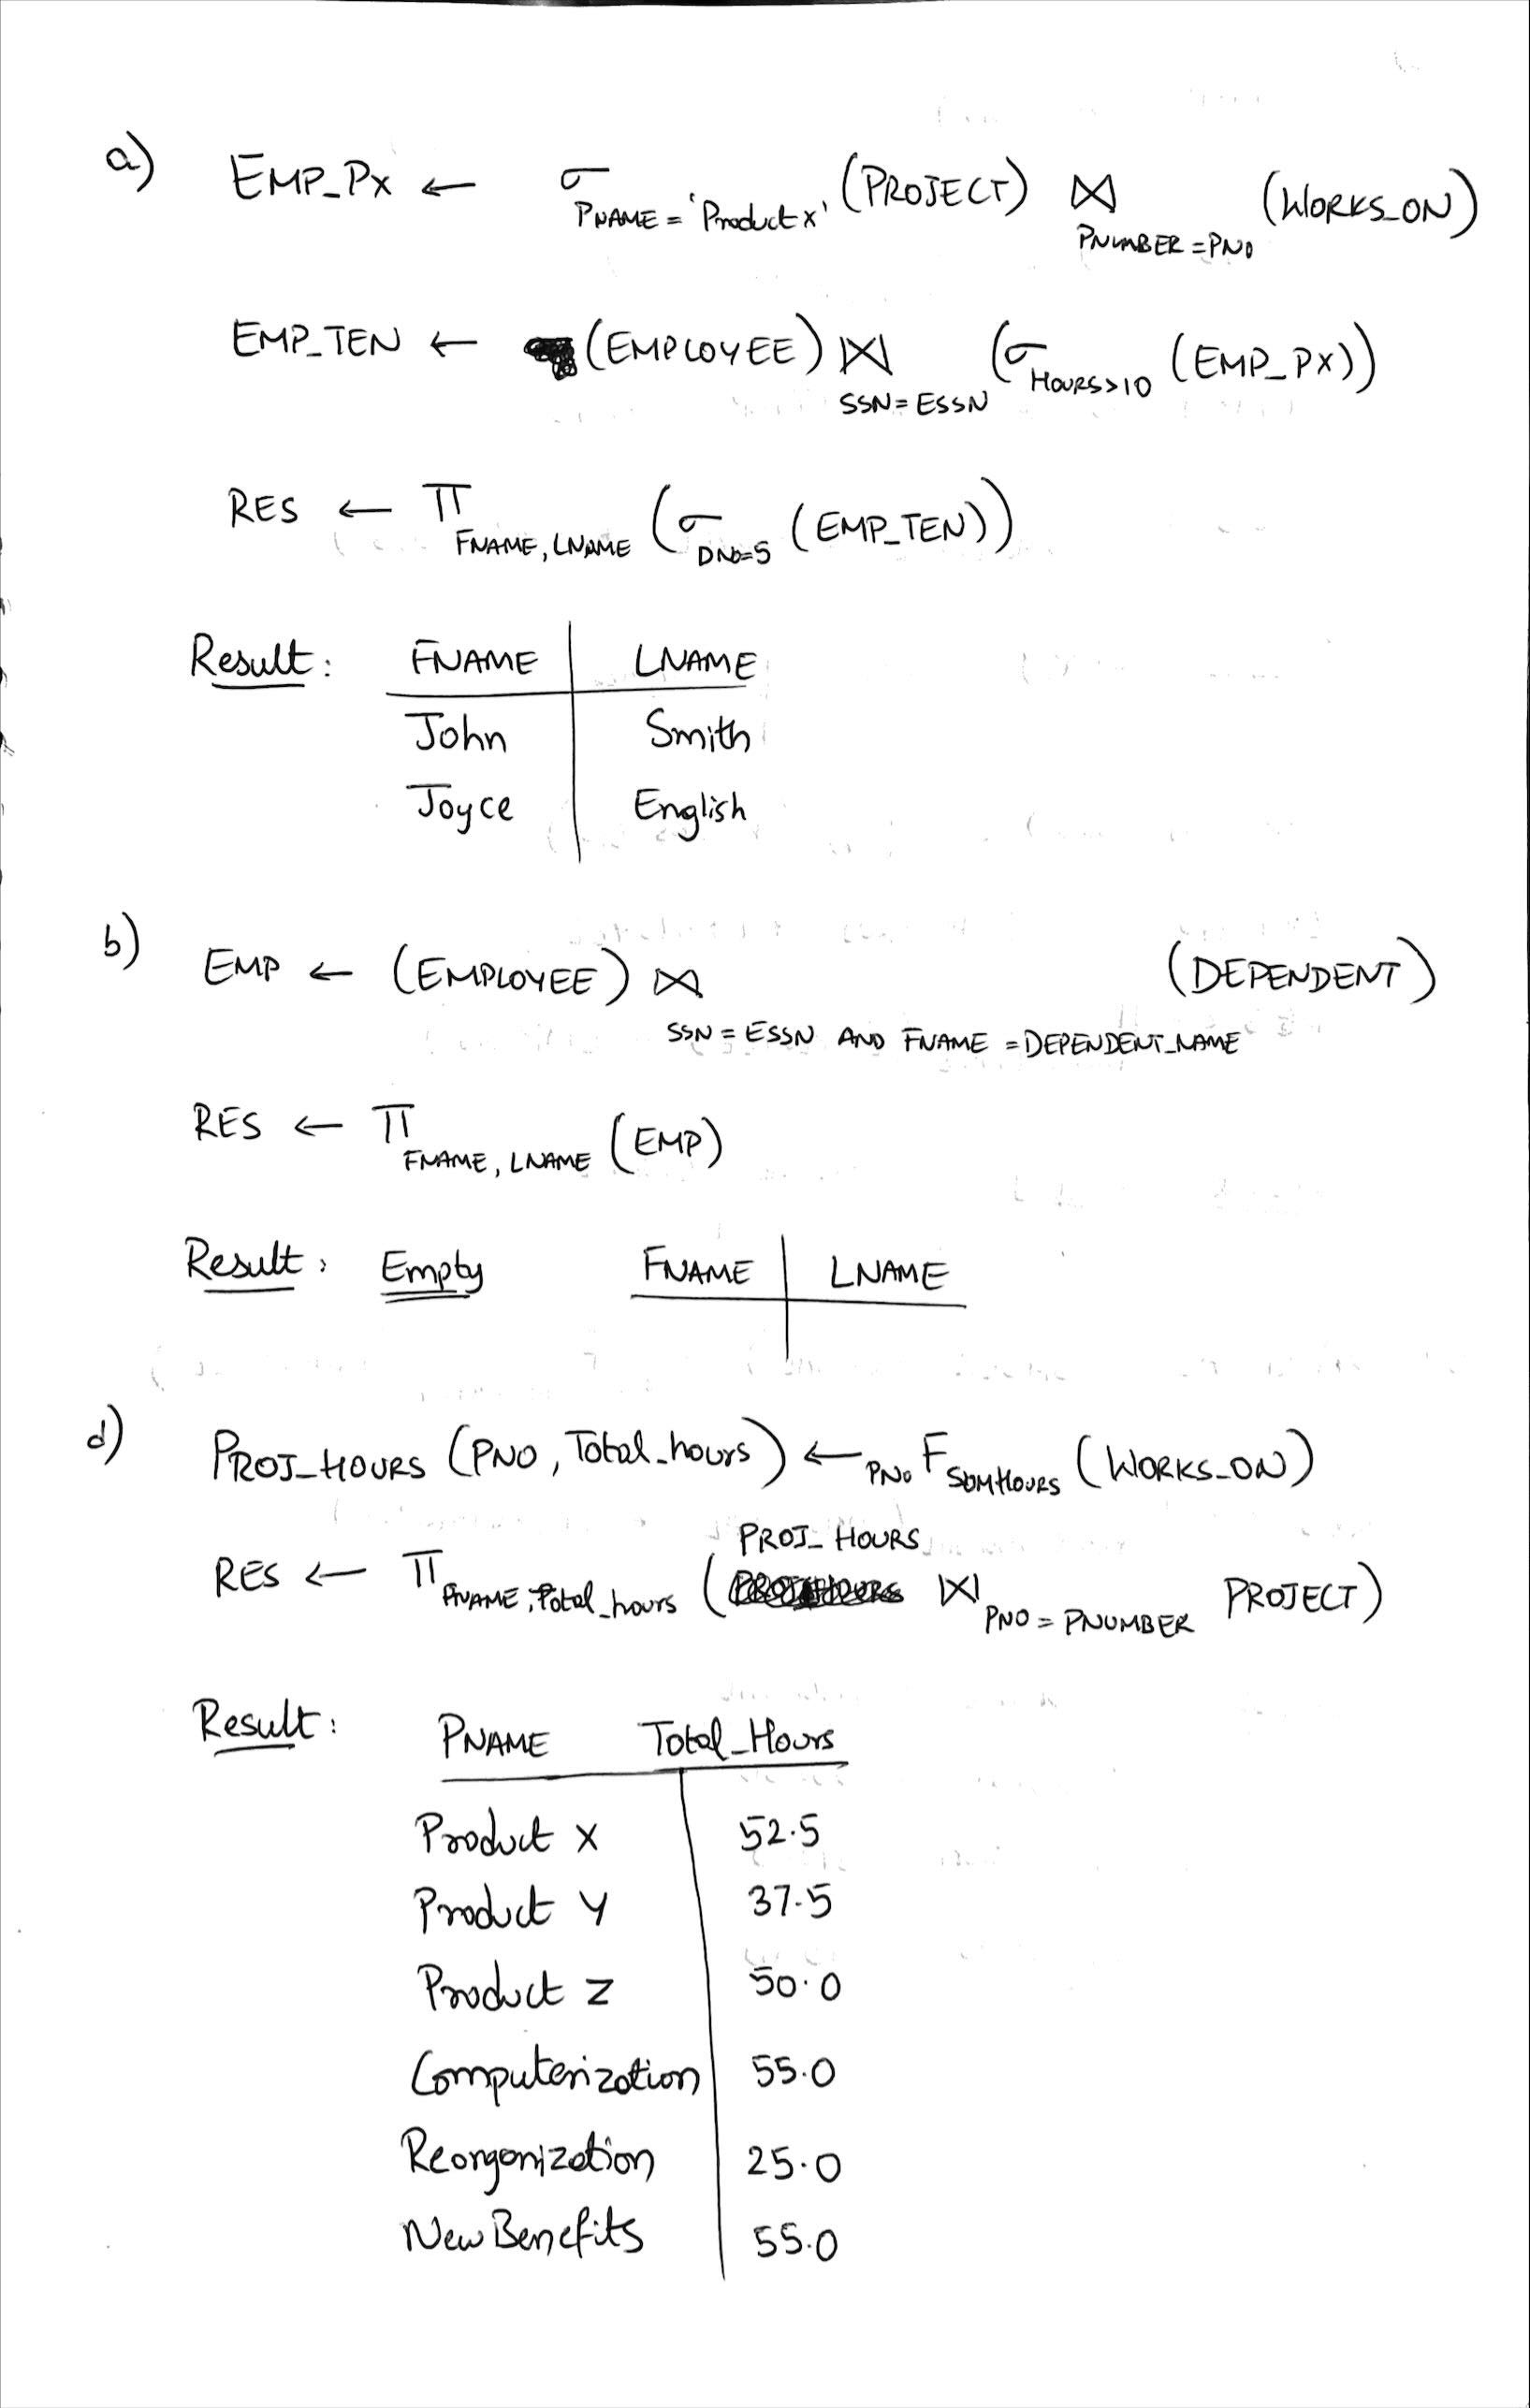 a) EMP_PX ← σ PNAME = 'Product X' (PROJECT) ⋈ PNUMBER = PNO (WORKS_ON)
EMP_TEN ← (EMPLOYEE) ⋈ SSN = ESSN (σ HOURS>10 (EMP_PX))
RES ← π FNAME, LNAME (σ DNO=5 (EMP_TEN))
Result: FNAME LNAME
John Smith
Joyce English
b) EMP ← (EMPLOYEE) ⋈ SSN = ESSN AND FNAME = DEPENDENT_NAME (DEPENDENT)
RES ← π FNAME, LNAME (EMP)
Result: Empty FNAME LNAME
d) PROJ_HOURS (PNO, Total_hours) ← PNO F SUM HOURS (WORKS_ON)
RES ← π PNAME, Total_hours (PROJ_HOURS ⋈ PNO = PNUMBER PROJECT)
Result: PNAME Total_Hours
Product X 52.5
Product Y 37.5
Product Z 50.0
Computerization 55.0
Reorganization 25.0
New Benefits 55.0